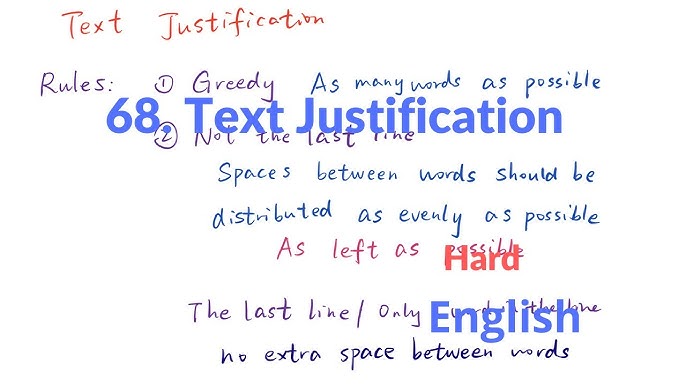 Text Justification
Rules: ① Greedy As many words as possible
68. Text Justification
② Not the last line
Spaces between words should be
distributed as evenly as possible
As left as possible
Hard
The last line / Only word in the line
English
no extra space between words